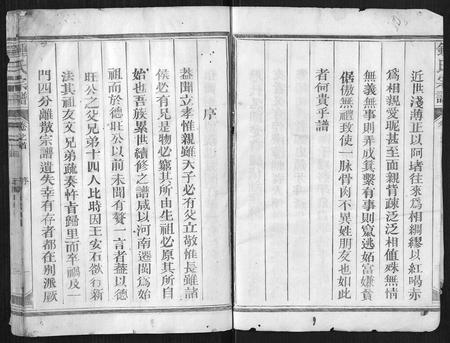 鍾氏宗譜
近世淺薄正以阿堵往來爲相綢繆以紅喝赤
爲相親愛昵甚至血親骨疎泛泛相値殊無情
無義無事則弄成箕繫有事則竄逃妬富嫌貧
倨傲無禮致使一脉骨肉不異姓朋友也如此
者何貴乎譜
序
蓋聞立孝惟親雖天子必有父立敬惟長雖諸
侯必有兄是物必窮其所由生祖必原其所自
始也吾族累世續修之譜咸以河南遷閩爲始
祖而於德旺公以前未聞有贅一言者蓋以德
旺公之父兄弟十四人比時因王安石欲行新
法其祖友文兄弟疏奏忤旨歸里而卒禍及一
門四分離散宗譜遺失幸有存者都在別派厥
鍾氏宗譜
卷之首
序